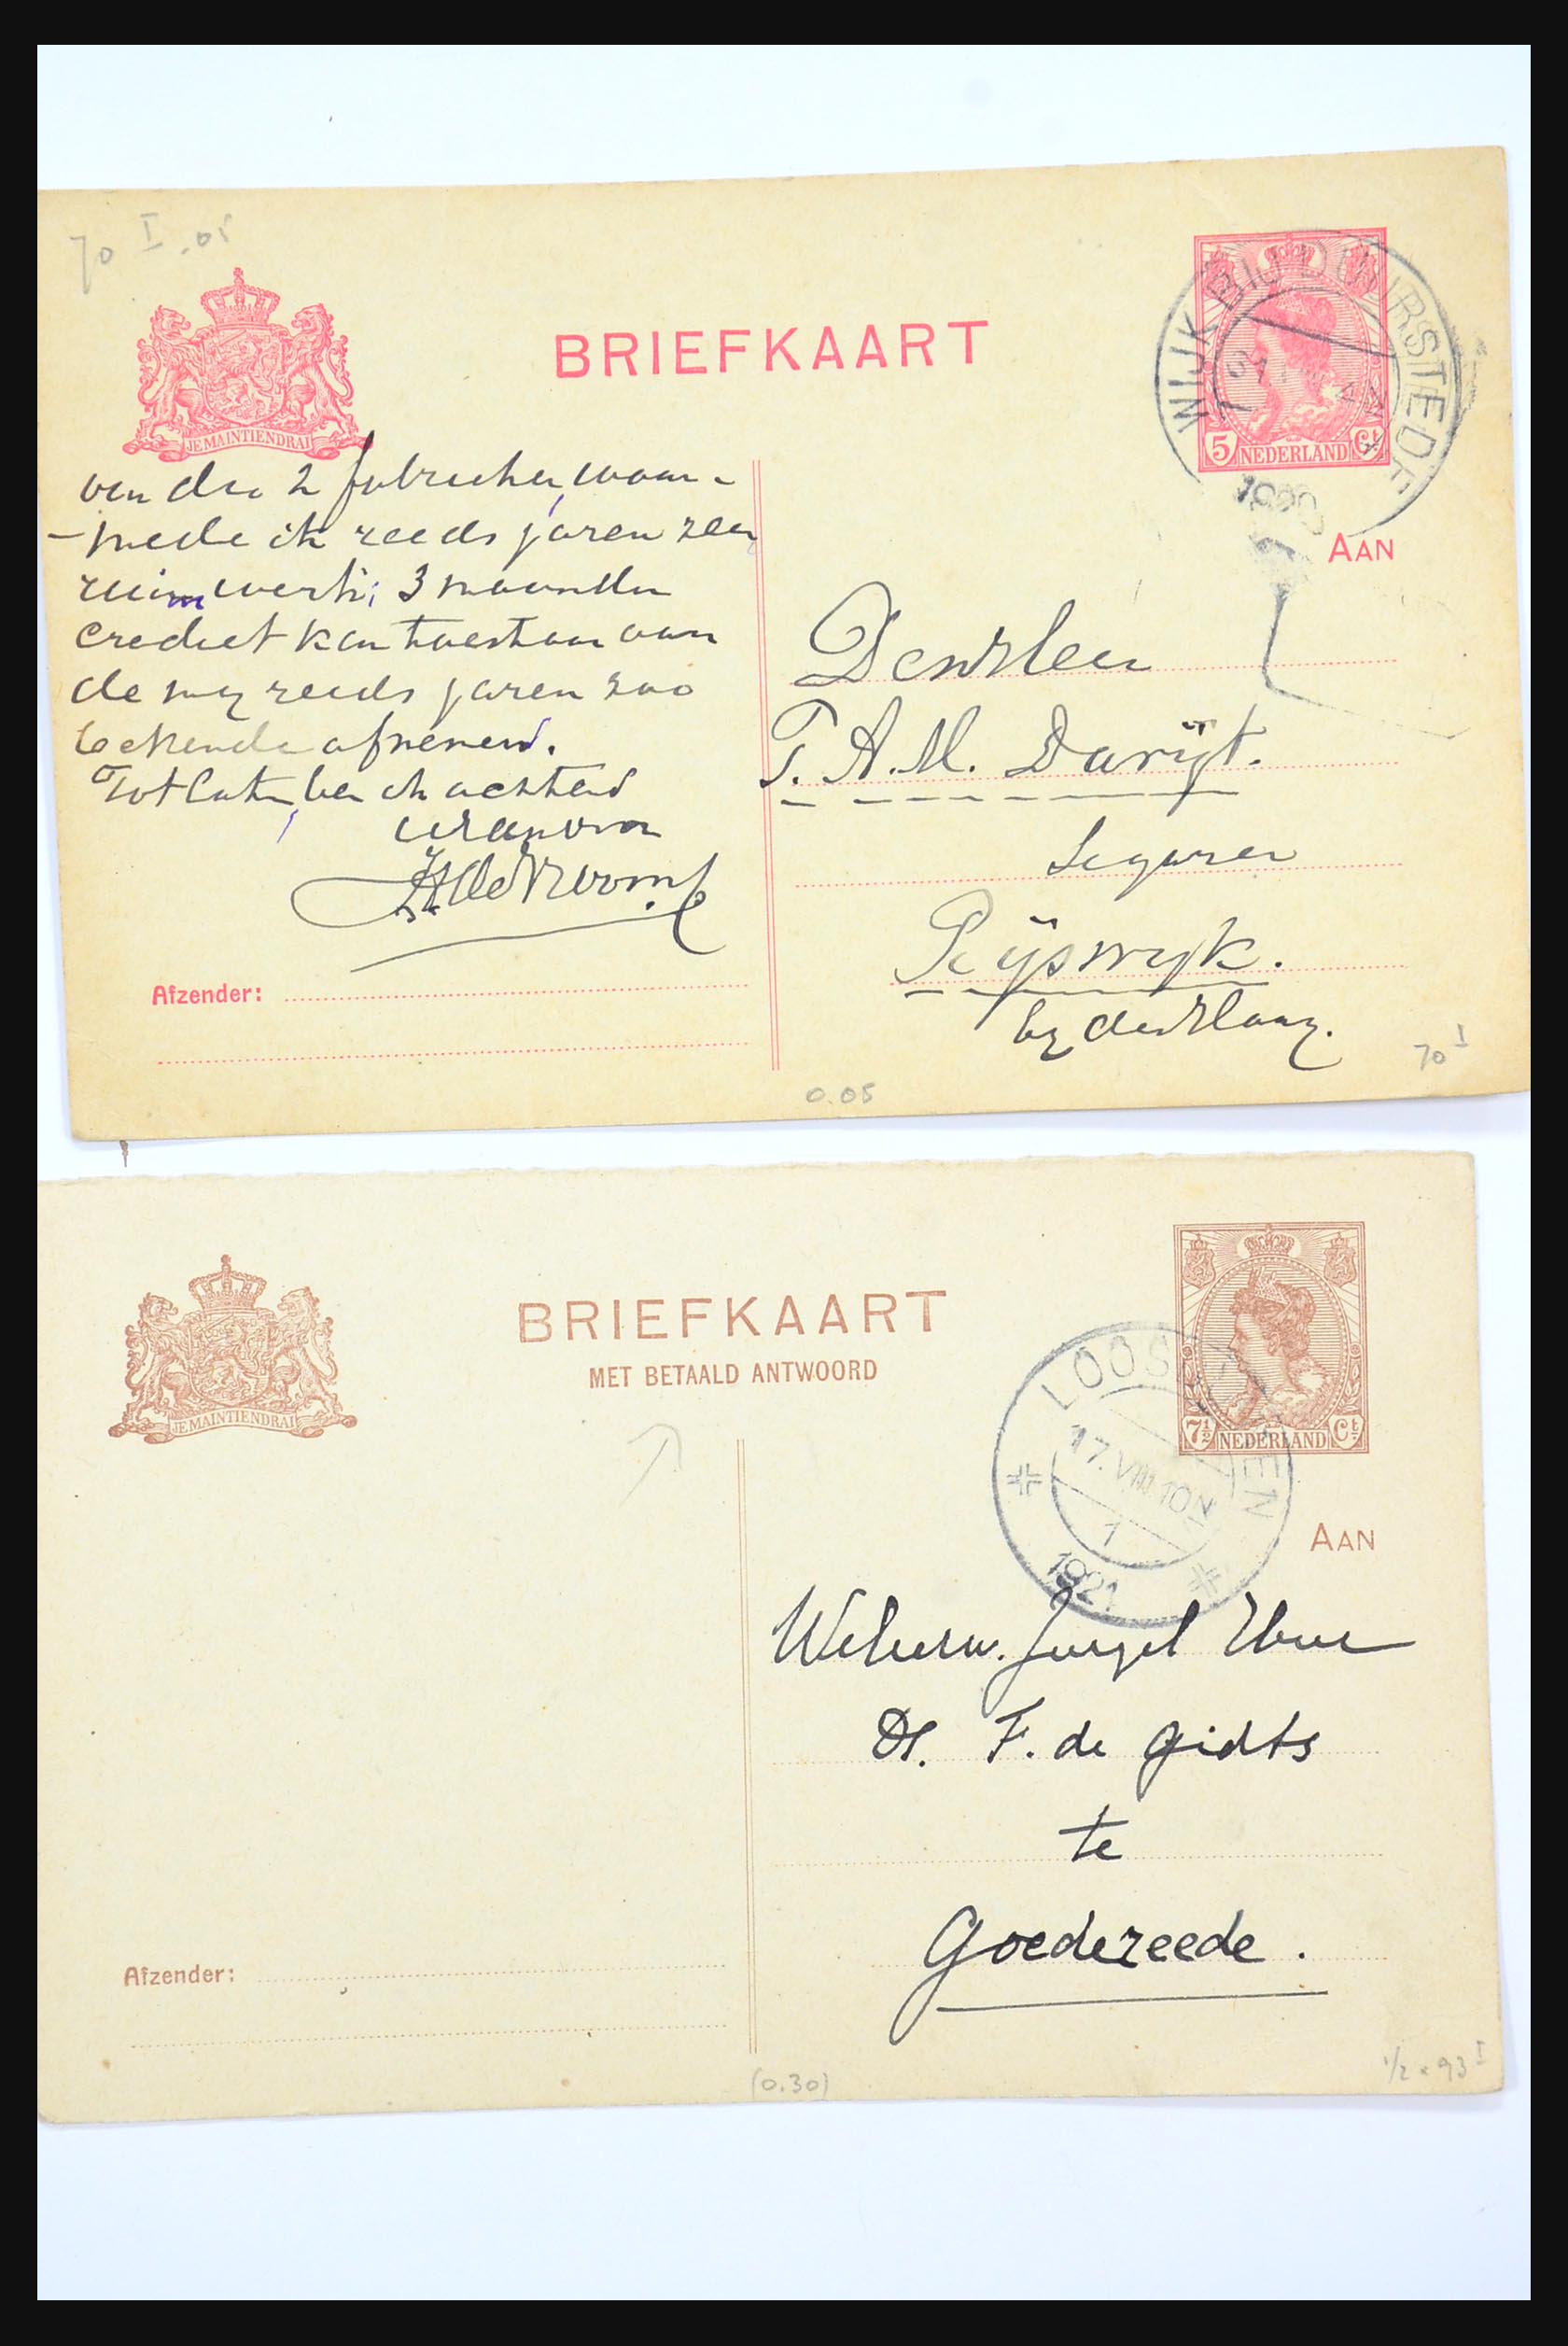 70 I .05
BRIEFKAART
JE MAINTIENDRAI
WIJK BIJ DUURSTEDE
5 NEDERLAND Ct
AAN
van de 2 fabrieken, waar-
-mede ik reeds jaren zeer
ruim werk; 3 maanden
crediet kan toestaan aan
de mij reeds jaren zoo
bekende afnemers.
Tot later, ben ik achtend
Den Heer
T. A. M. Darijt.
Sigaren
Rijswijk.
bij den Haag.
Afzender:
0.05
70 I
BRIEFKAART
MET BETAALD ANTWOORD
JE MAINTIENDRAI
7½ NEDERLAND Ct
LOOSDUINEN
17.VIII.10N
1
1921
AAN
Weleerw. Heer
Ds. F. de Gidts
te
Goedereede.
Afzender:
(0.30)
1/2 . 93 I